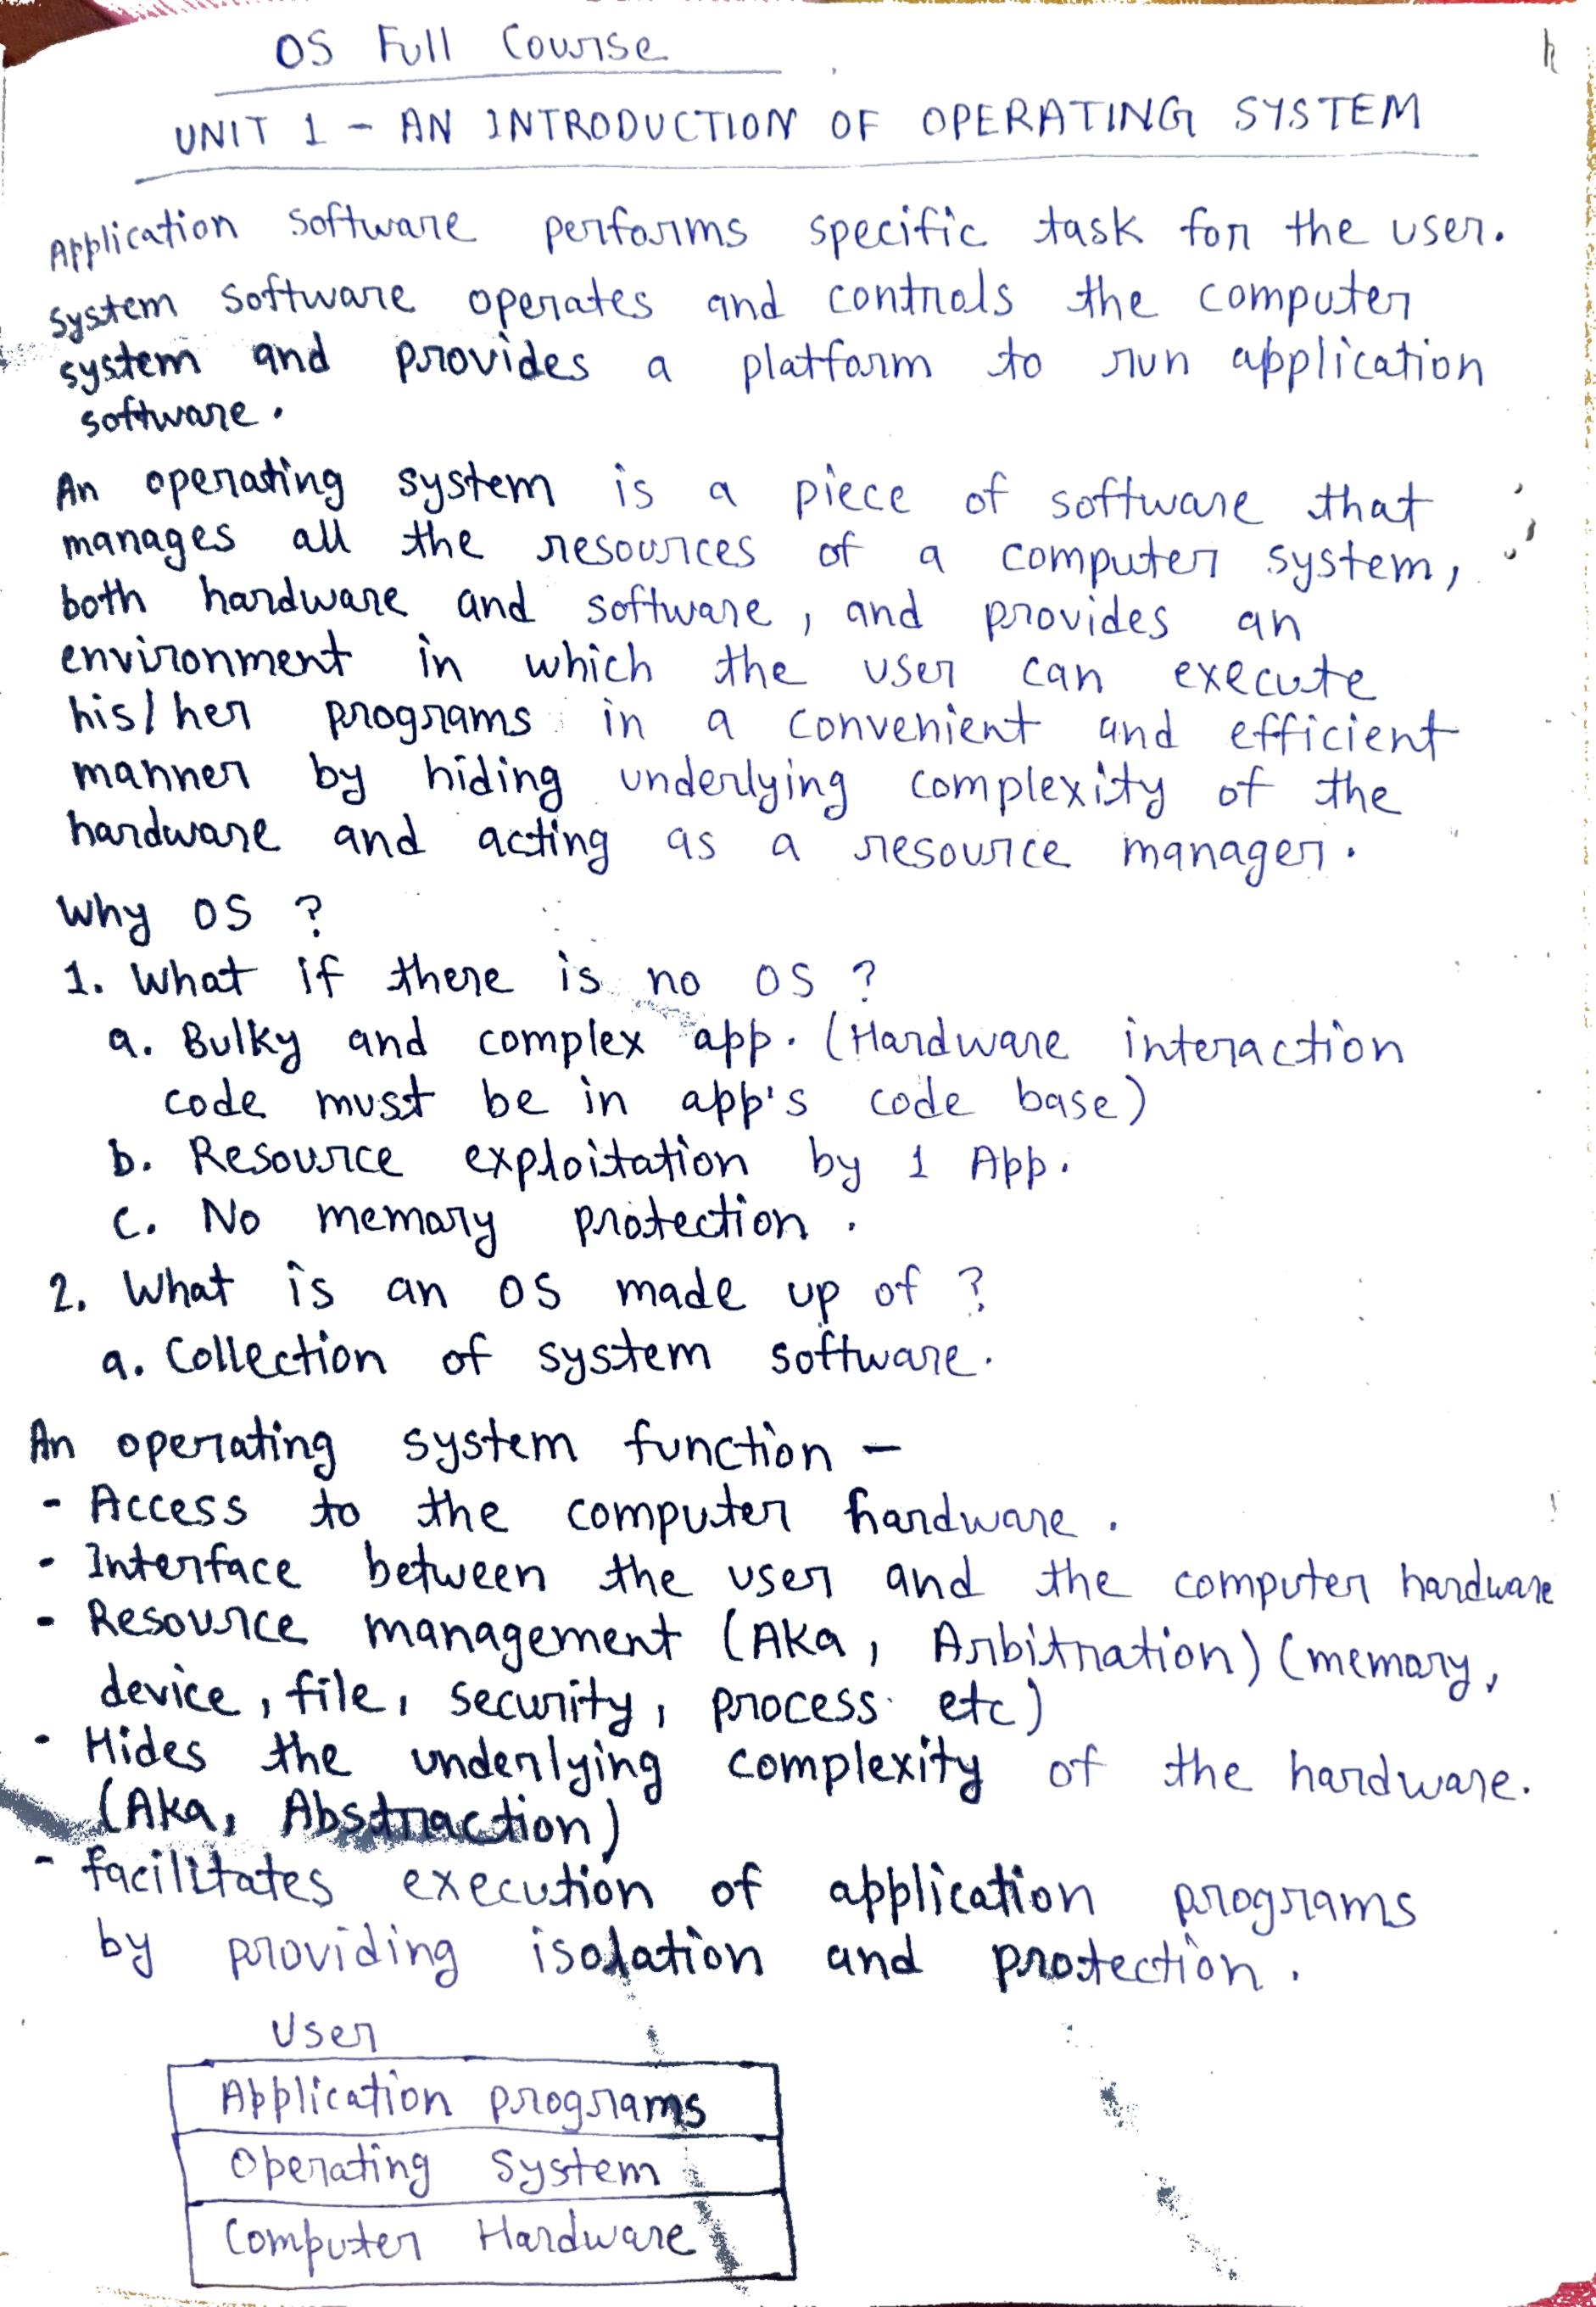 OS Full Course
UNIT 1 - AN INTRODUCTION OF OPERATING SYSTEM
Application software performs specific task for the user.
System software operates and controls the computer
system and provides a platform to run application
software.
An operating system is a piece of software that
manages all the resources of a computer system,
both hardware and software, and provides an
environment in which the user can execute
his/her programs in a convenient and efficient
manner by hiding underlying complexity of the
hardware and acting as a resource manager.
Why OS ?
1. What if there is no OS ?
a. Bulky and complex app. (Hardware interaction
code must be in app's code base)
b. Resource exploitation by 1 App.
c. No memory protection.
2. What is an OS made up of ?
a. Collection of system software.
An operating system function -
- Access to the computer hardware.
- Interface between the user and the computer hardware
- Resource management (Aka, Arbitration) (memory,
device, file, security, process etc)
- Hides the underlying complexity of the hardware.
(Aka, Abstraction)
- facilitates execution of application programs
by providing isolation and protection.
User
Application programs
Operating System
Computer Hardware